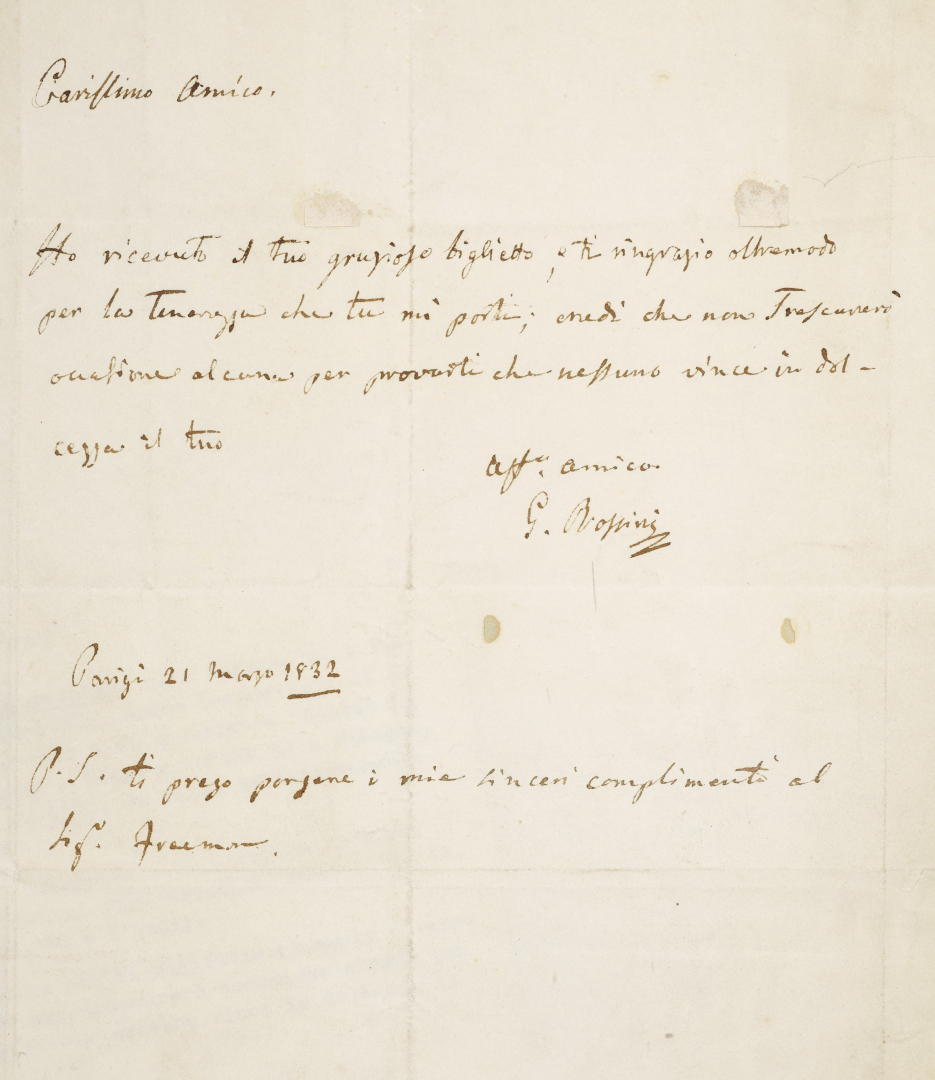 Carissimo Amico.
Ho ricevuto il tuo grazioso biglietto, e ti ringrazio oltremodo
per la tenerezza che tu mi porti; credi che non trascurerò
occasione alcuna per provarti che nessuno vince in dol-
cezza il tuo
Aff.o amico
G. Rossini
Parigi 21 Marzo 1832
P.S. ti prego porgere i miei sinceri complimenti al
Sig.r Freemon.